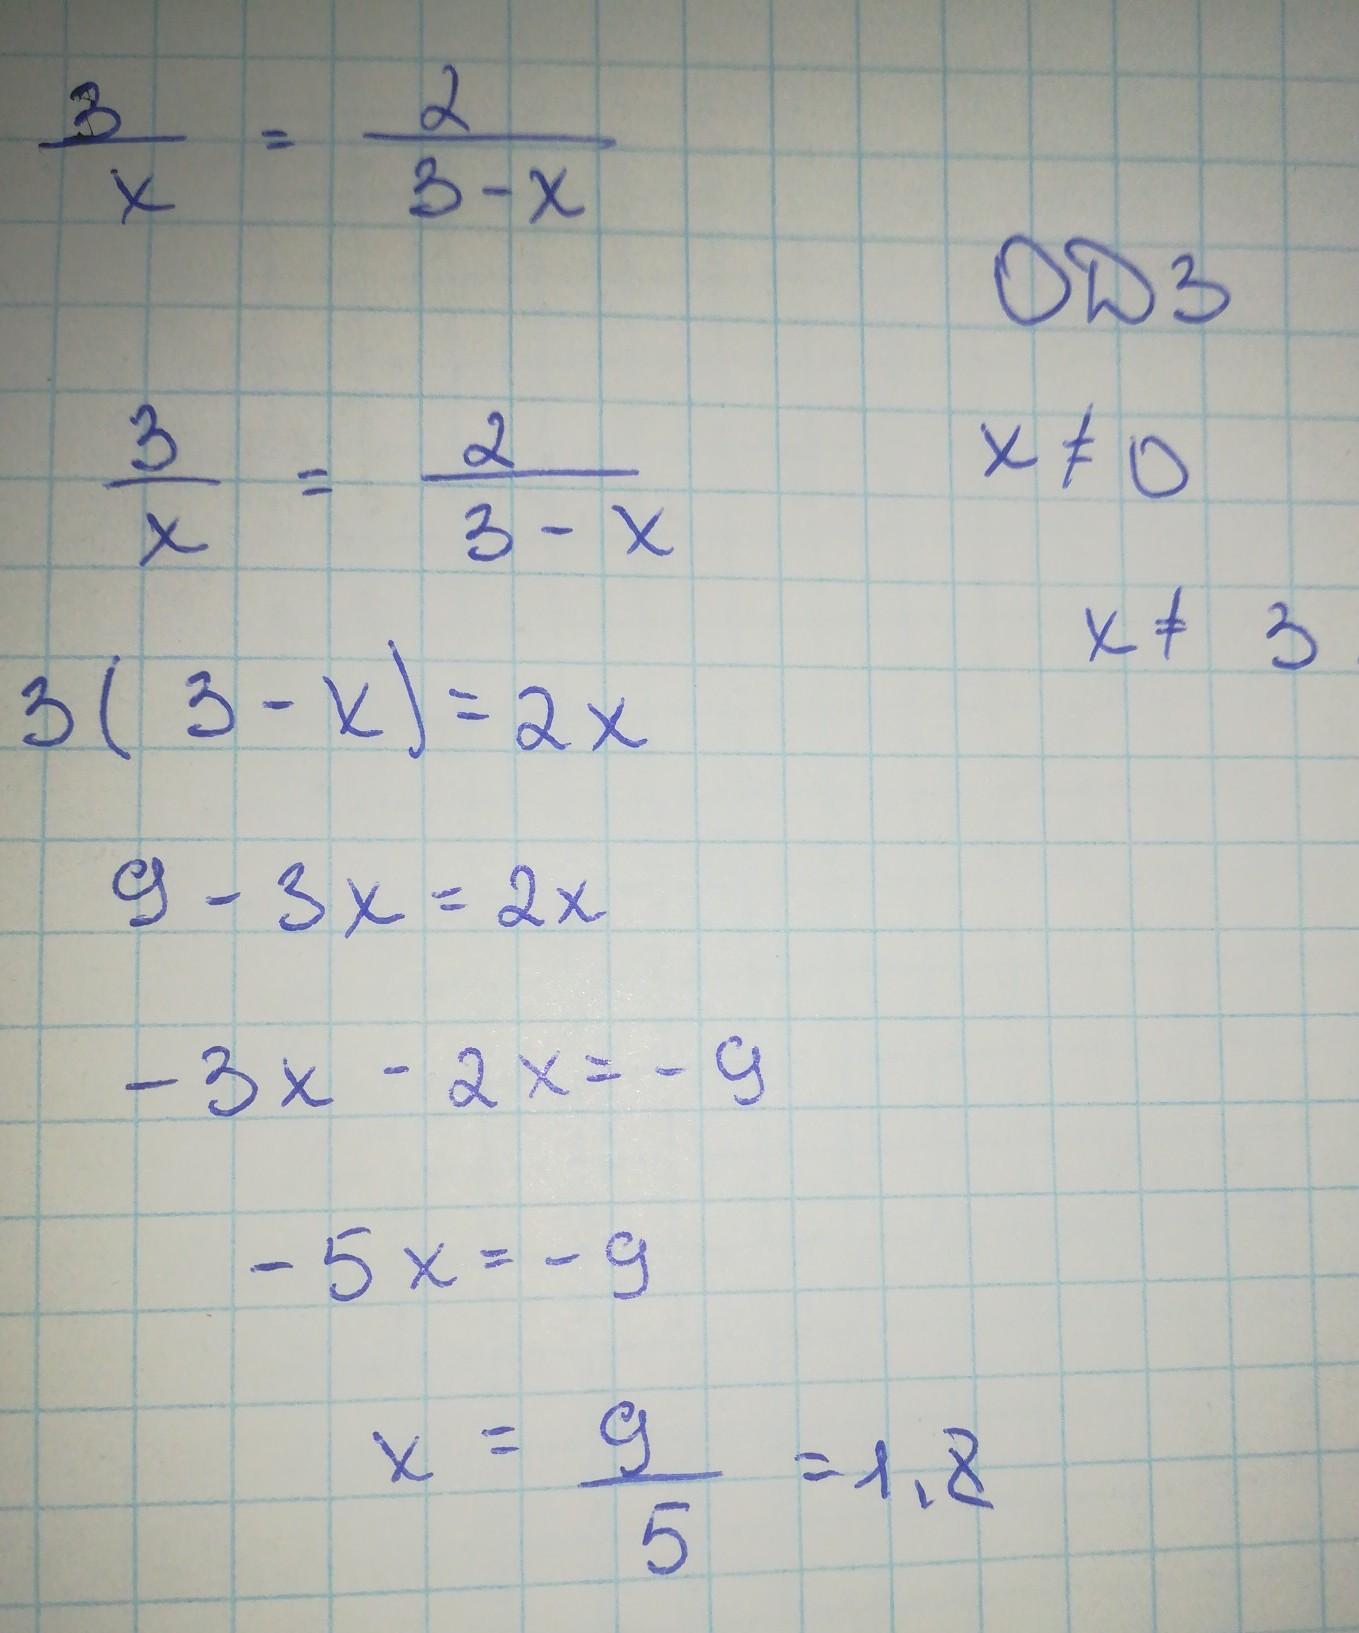 3/x = 2/(3-x)
ОДЗ
3/x = 2/(3-x)
x ≠ 0
x ≠ 3
3(3-x)=2x
9-3x=2x
-3x-2x=-9
-5x=-9
x = 9/5 =1,8